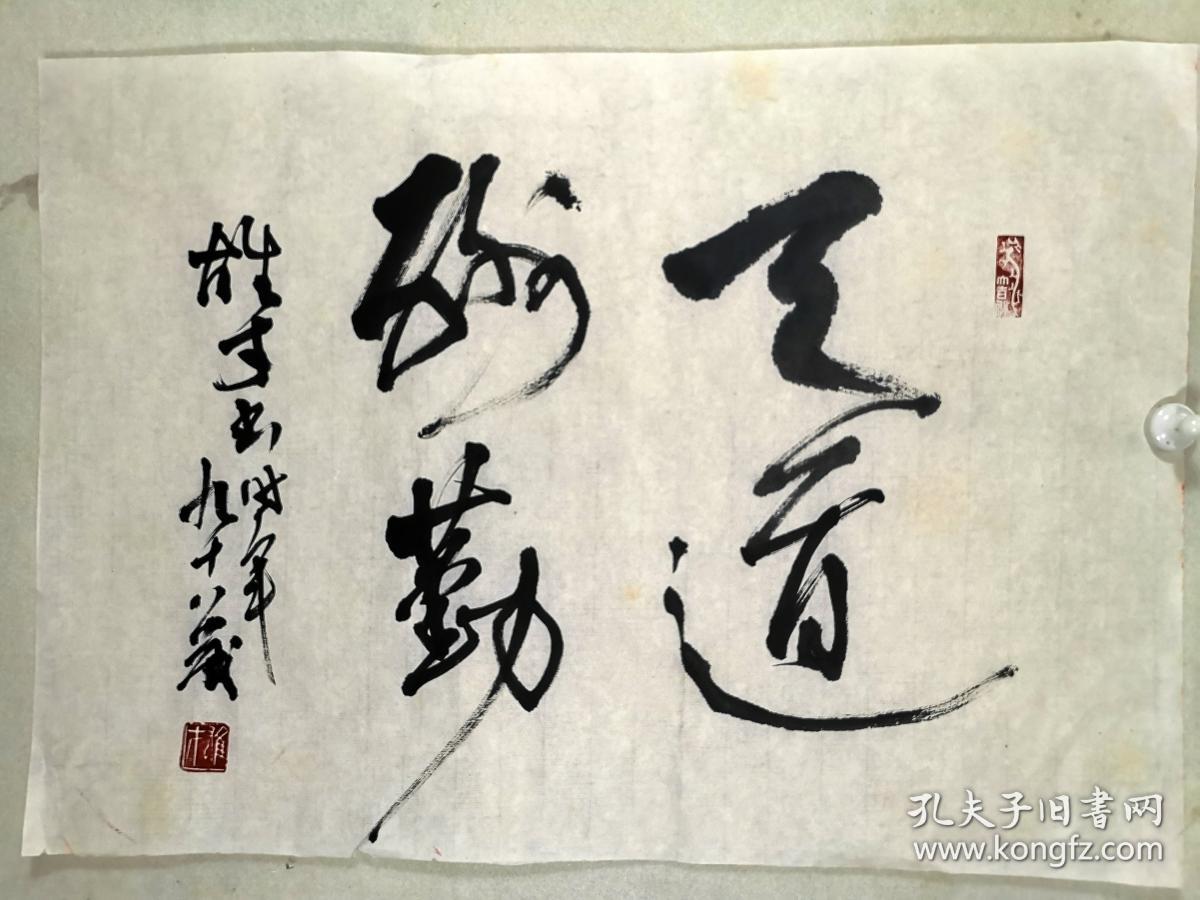 天道
酬勤
雄才书时年
九十八岁
孔夫子旧书网
www.kongfz.com